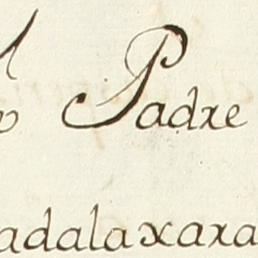 Padre
adalaxara